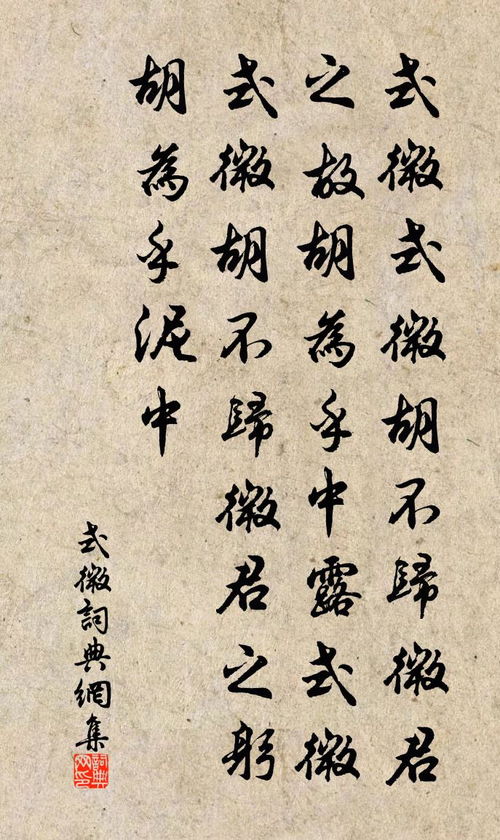 式微式微胡不歸微君
之故胡為乎中露式微
式微胡不歸微君之躬
胡為乎泥中
式微詞典網集
詞典網印